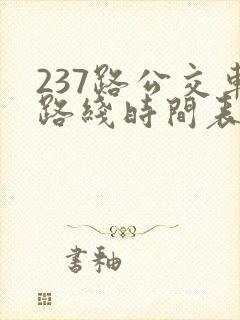 237路公交車
路綫時間表
書釉